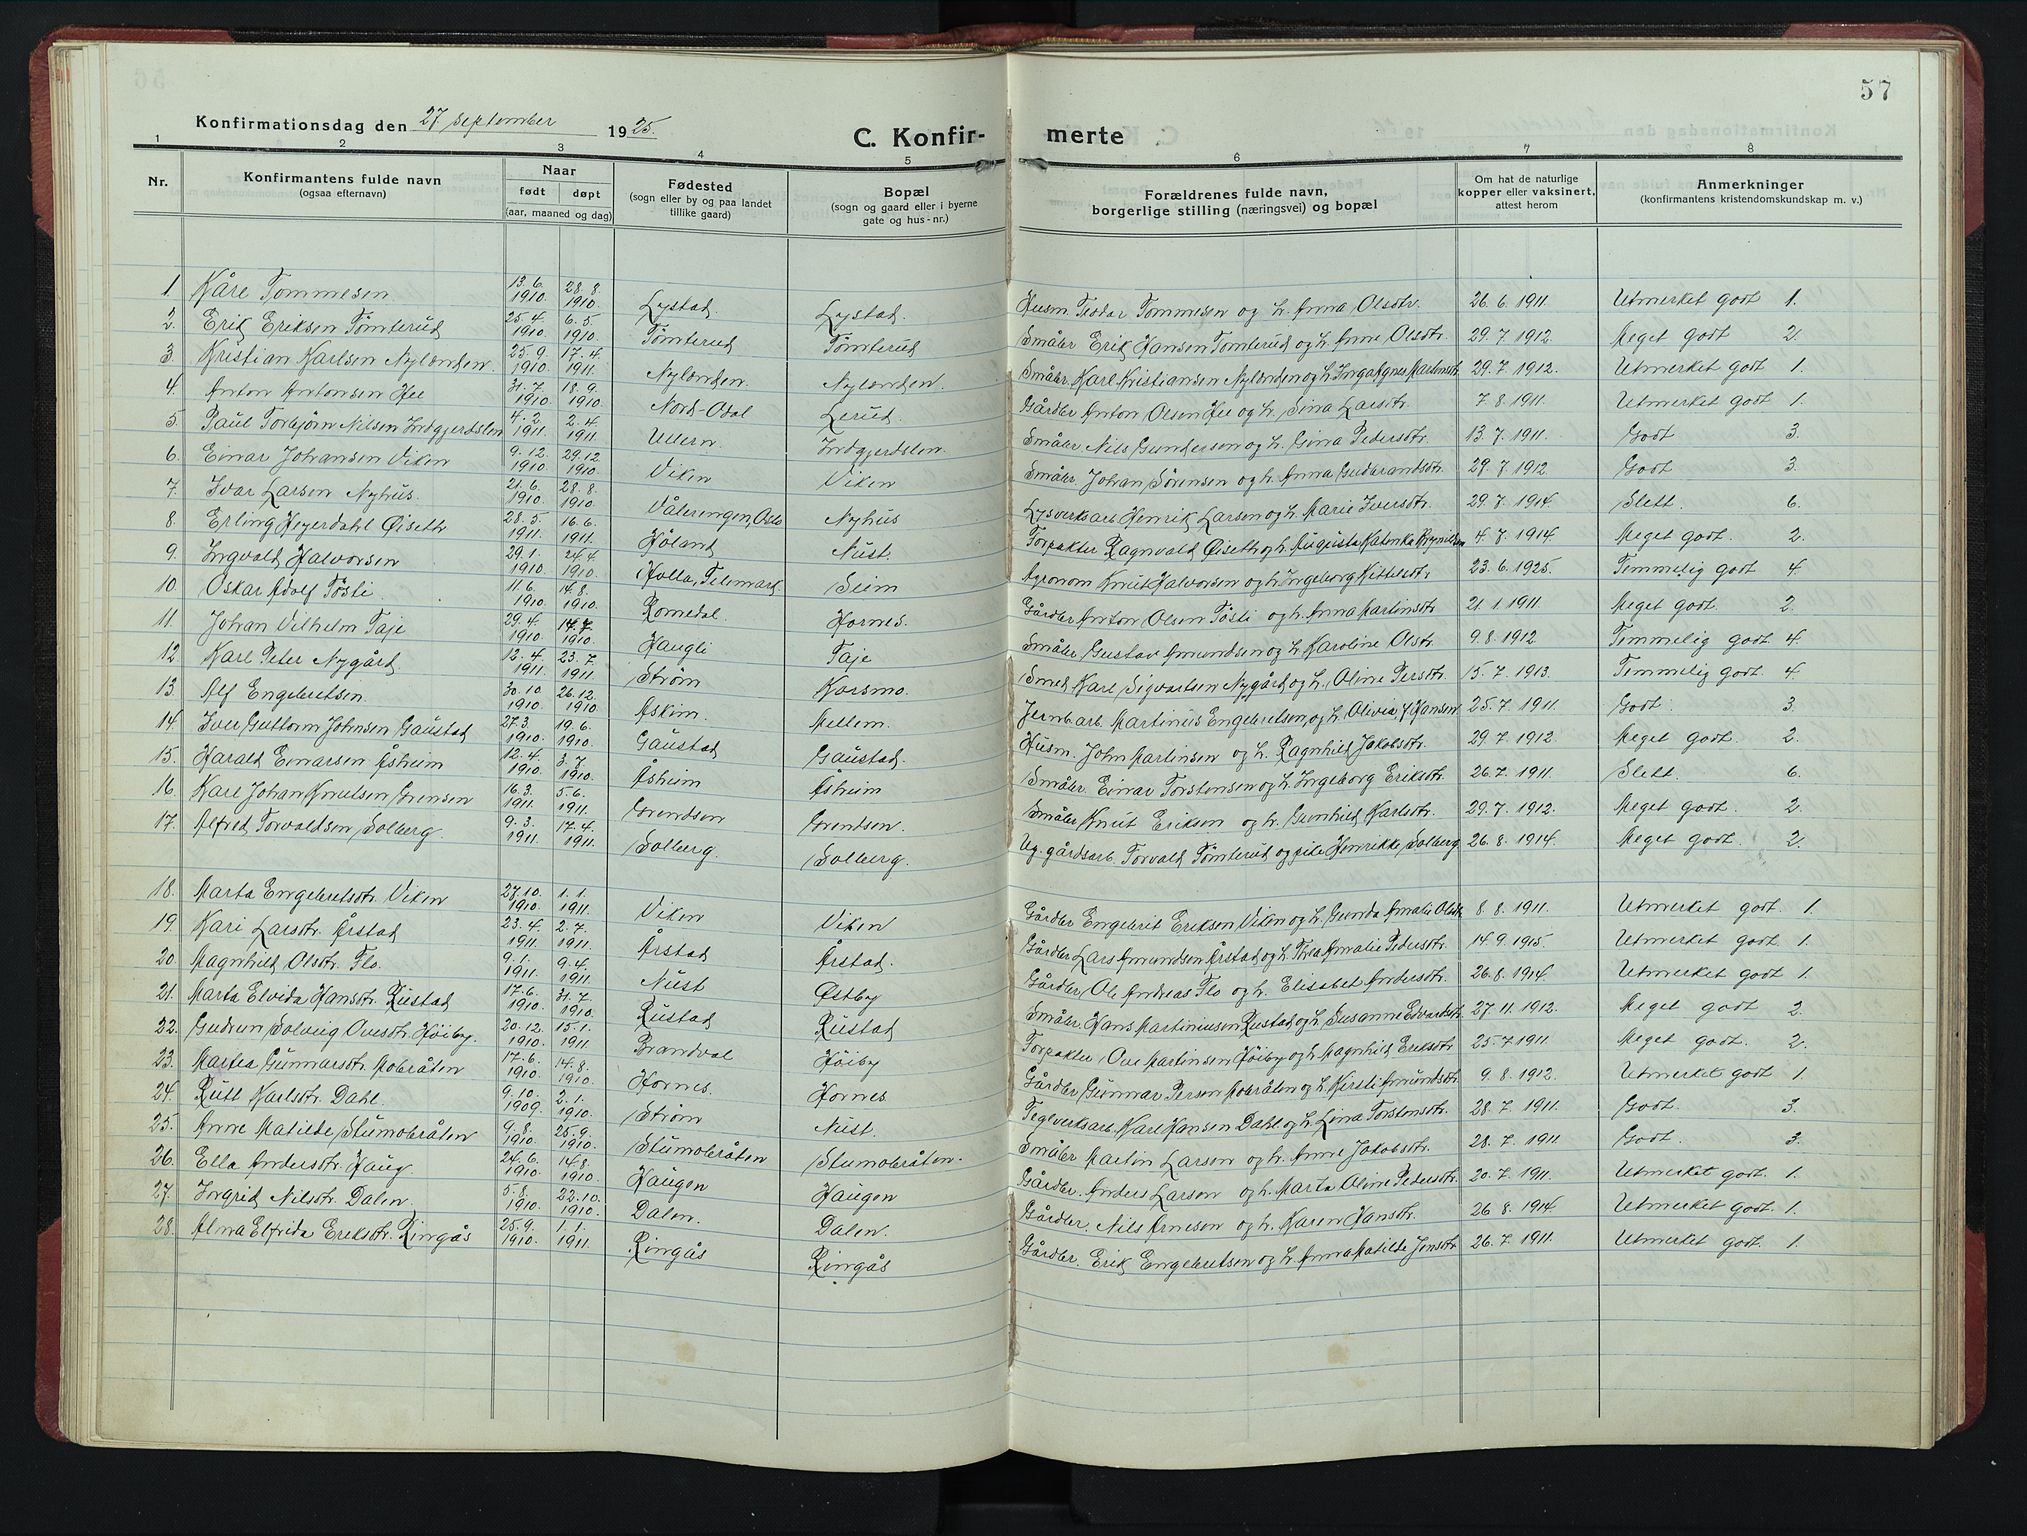 57
Konfirmationsdag den 27 september 1925.
C. Konfirmerte
1 2 3 4 5 6 7 8
Nr.
Konfirmantens fulde navn (ogsaa efternavn)
Naar født døpt (aar, maaned og dag)
Fødested (sogn eller by og paa landet tillike gaard)
Bopæl (sogn og gaard eller i byerne gate og hus-nr.)
Forældrenes fulde navn, borgerlige stilling (næringsvei) og bopæl
Om hat de naturlige kopper eller vaksinert, attest herom
Anmerkninger (konfirmantens kristendomskundskap m. v.)
1. Kåre Tommesen. 13.6. 1910. 28.8. 1910. Lystad. Lystad. Husm. Tommesen og h. Anna Olsdtr. 26.6.1911. Utmerket godt 1.
2. Erik Eriksen Tömterud 25.4. 1910 6.5. 1910 Tömterud Tömterud Småbr. Erik Hansen Tömterud og h. Anne Olsdtr. 29.7.1912. Meget godt 2.
3. Kristian Karlsen Nylænden. 25.9. 1910. 17.4. 1911. Nylænden. Nylænden. Småbr. Karl Kristiansen Nylænden og h. Inga Agnes Martinsdtr. 29.7.1912. Utmerket godt 1.
4. Anton Antonsen Hee 31.7. 1910. 18.9. 1910 Nord-Odal Lerud. Gårdbr. Anton Olsen Hee og h. Sina Larsdtr. 7.8.1911. Utmerket godt 1.
5. Paul Torbjørn Nilsen Indgjerdslen 4.2. 1911. 2.4. 1911 Ullern. Indgjerdslen. Småbr. Nils Gundersen og h. Gina Pedersdtr. 13.7.1911. Godt 3.
6. Einar Johansen Viken 9.12. 1910. 29.12 1910. Viken Viken Småbr. Johan Sörensen og h. Anna Gudbrandsdtr. 29.7.1912. Godt 3.
7. Ivar Larsen Nyhus. 21.6. 1910. 28.8. 1910. Vålerengen, Oslo Nyhus Lysverksarb. Henrik Larsen og h. Marie Iversdtr. 29.7.1914. Slett. 6.
8. Erling Heyerdahl Øiseth 28.5. 1911. 16.6. 1911. Høland Nust. Forpakter Ragnvald Øiseth og h. Augusta Katinka 4.7.1914. Meget godt. 2.
9. Ingvald Halvorsen 29.1. 1910. 24.4. 1910. Holla, Telemark. Seim Agronom Knut Halvorsen og h. Ingeborg Kittelsdtr. 23.6.1925. Temmelig godt 4.
10. Oskar Adolf Tösti. 11.6. 1910. 14.8. 1910. Romedal. Hornes. Gårdbr. Anton Olsen Tösti og h. Anna Martinsdtr. 21.1.1911. Meget godt. 2.
11. Johan Vilhelm Taje 29.4. 1910 17.7. 1910 Haugli Taje Småbr. Gustav Amundsen og h. Karoline Olsdtr. 9.8.1912 Temmelig godt 4
12 Karl Peter Nygård 12.4. 1911. 23.7. 1911. Strøm Korsmo. Smed Karl Sigvartsen Nygård og h. Oline Persdtr. 15.7.1913. Temmelig godt. 4.
13. Alf Engebretsen. 30.10. 1910. 26.12. 1910. Askim. Mellem. Jernb.arb. Martinus Engebretsen og h. Olivia f. Hansen 25.7.1911. Godt. 3.
14. Iver Guttorm Johnsen Gaustad 27.3. 1910. 19.6. 1910. Gaustad Gaustad. Husm. John Martinsen og h. Ragnhild Jakobsdtr. 29.7.1912. Meget godt. 2.
15. Harald Einarsen Åsheim 12.4. 1910. 3.7. 1910. Åsheim Åsheim Småbr. Einar Torstensen og h. Ingeborg Eriksdtr. 26.7.1911. Slett. 6.
16. Karl Johan Knutsen Grensen 16.3. 1911. 5.6. 1911. Grendsen Grendsen. Småbr Knut Eriksen og h. Gunhild Karlsdtr. 29.7.1912. Meget godt. 2.
17. Alfred Torvaldsen Solberg. 9.3. 1911. 17.4. 1911. Solberg. Solberg. Ug. gårdsarb. Torvald Tömterud og pike Henrikke Solberg 26.8.1914. Meget godt. 2.
18. Marta Engebretsdtr. Viken 27.10. 1910 1.1. 1911. Viken Viken Gårdbr. Engebret Eriksen Viken og h. Gunda Amalie Olsdtr. 8.8.1911. Utmerket godt 1.
19. Kari Larsdtr. Årstad 23.4. 1911. 2.7. 1911. Årstad Årstad. Gårdbr Lars Amundsen Årstad og h. Thea Amalie Pedersdtr. 14.9.1915. Utmerket godt. 1.
20. Magnhild Olsdtr. Flo. 9.1. 1911. 9.4. 1911. Nust Østby Gårdbr. Ole Andreas Flo og h. Elisabet Andersdtr. 26.8.1914. Utmerket godt 1.
21. Marta Elvida Hansdtr. Rustad 17.6. 1910. 31.7. 1910. Rustad Rustad Småbr. Hans Martiniusen Rustad og h. Susanne Edvardsdtr. 27.11.1912. Meget godt 2.
22. Gudrun Solveig Ovesdtr. Høiby. 20.12. 1910. 15.1. 1911 Brandval Høiby Forpakter Ove Martinsen Høiby og h. Magnhild Eriksdtr. 25.7.1911. Meget godt. 2.
23. Martea Gunnarsdtr. Mobråten 17.6. 1910. 14.8. 1910. Hornes. Hornes Gårdbr. Gunnar Persen Mobråten og h. Kirsti Amundsdtr. 9.8.1912. Utmerket godt 1.
24. Rutt Karlsdtr. Dahl. 9.10. 1909. 2.1. 1910. Strøm Nust. Teglverksarb. Karl Hansen Dahl og h. Lina Torstensdtr. 28.7.1911. Godt. 3.
25. Anne Matilde Stumobråten 9.8. 1910. 25.9. 1910. Stumobråten Stumobråten. Småbr Martin Larsen og h. Anne Jakobsdtr. 28.7.1911 Godt. 3.
26. Ella Andersdtr. Haug. 24.6. 1910. 14.8. 1910. Haugen Haugen Gårdbr. Anders Larsen og h. Marta Oline Pedersdtr. 20.7.1911. Utmerket godt. 1.
27. Ingrid Nilsdtr. Dalen. 5.8. 1910. 22.10. 1910. Dalen. Dalen. Gårdbr. Nils Arnesen og h. Karen Hansdtr. 26.8.1914 Utmerket godt. 1.
28. Alma Elfrida Eriksdtr. Ringås 25.9. 1910. 1.1. 1911. Ringås Ringås Gårdbr. Erik Engebretsen og h. Anna Matilde Jensdtr. 26.7.1911. Utmerket godt. 1.